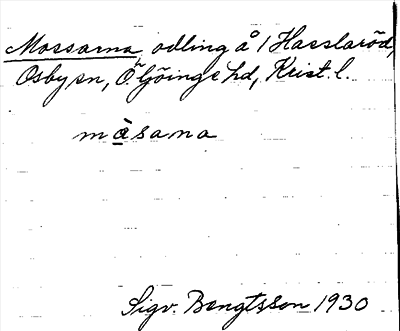 Mossarna, odling å 1 Hasslaröd,
Osby sn, Ö. Göinge hd, Krist. l.
màsana
Sigv. Bengtsson 1930